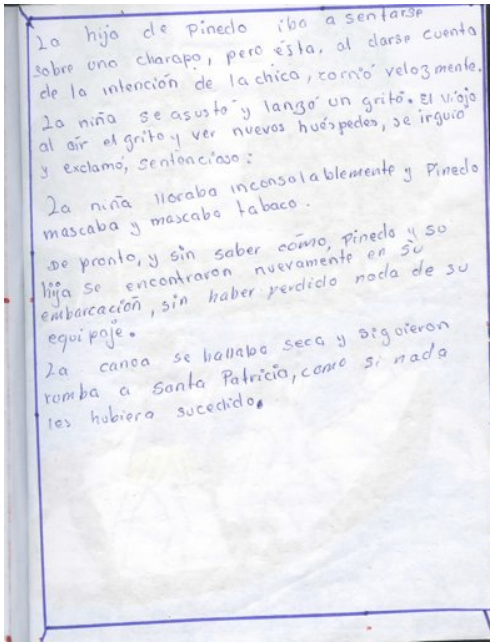 La hija de Pinedo iba a sentarse
sobre una charapa, pero ésta, al darse cuenta
de la intención de la chica, corrió velozmente.
La niña se asustó y lanzó un grito. El viejo
al oir el grito y ver nuevos huéspedes, se irguió
y exclamó, sentencioso:
La niña lloraba inconsolablemente y Pinedo
mascaba y mascaba tabaco.
De pronto, y sin saber cómo, Pinedo y su
hija se encontraron nuevamente en su
embarcación, sin haber perdido nada de su
equipaje.
La canoa se hallaba seca y siguieron
romba a Santa Patricia, como si nada
les hubiera sucedido.